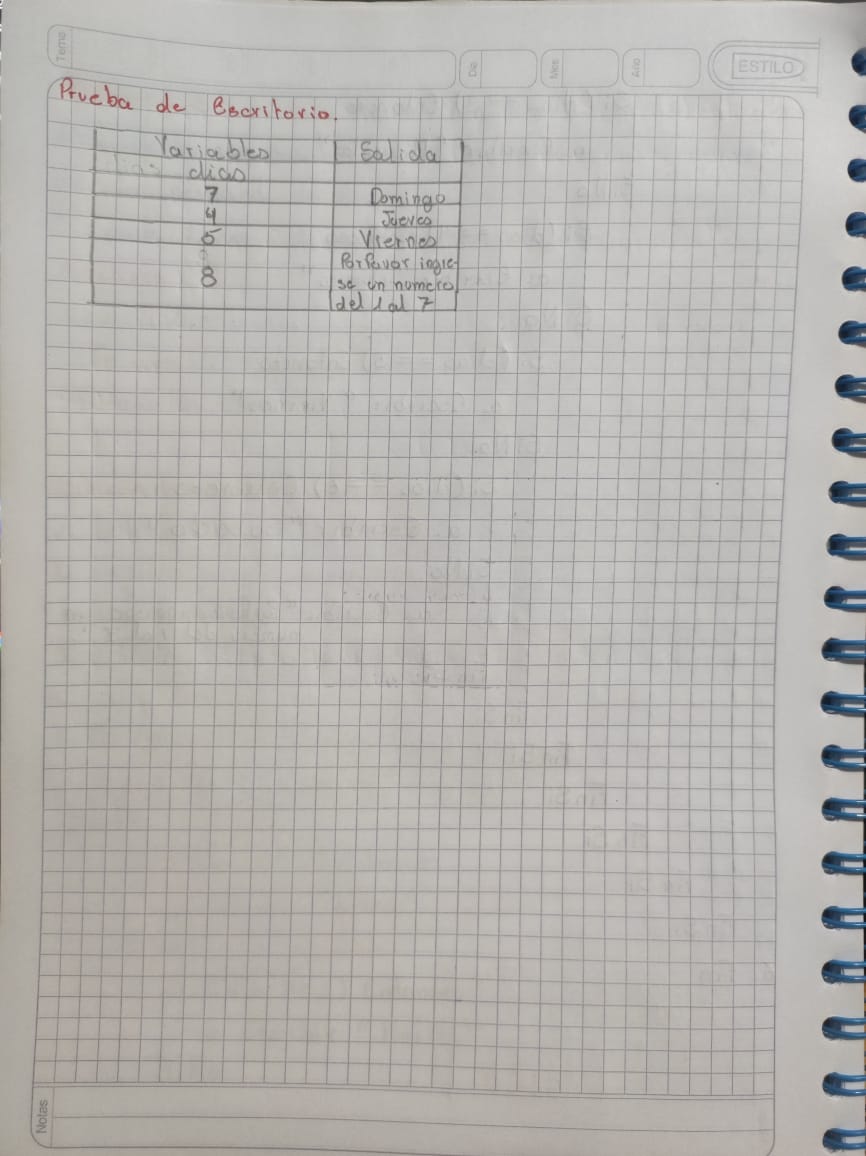 Tema
Dia
Mes
Año
ESTILO
Prueba de Escritorio.
Variables Salida
dias
7 Domingo
4 Jueves
5 Viernes
8 Porfavor ingre-
se un numero
del 1 al 7
Notas